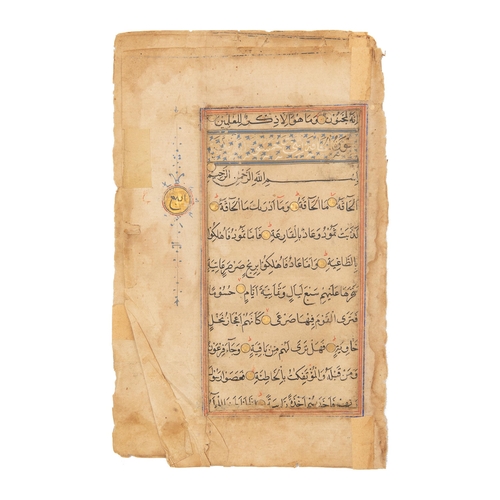 انه لمجنون وما هو الا ذكر للعلمين
بسم الله الرحمن الرحيم
الحاقة ما الحاقة وما ادريك ما الحاقة
كذبت ثمود وعاد بالقارعة فاما ثمود فاهلكوا
بالطاغية واما عاد فاهلكوا بريح صرصر عاتية
سخرها عليهم سبع ليال وثمانية ايام حسوما
فترى القوم فيها صرعى كانهم اعجاز نخل
خاوية فهل ترى لهم من باقية وجاء فرعون
ومن قبله والمؤتفكت بالخاطئة فعصوا رسول
ربهم فاخذهم اخذة رابية انا لما طغا الماء